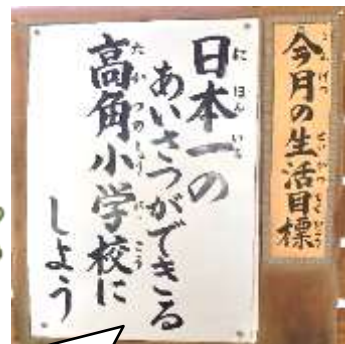 今月の生活目標
日本一の
あいさつができる
高角小学校に
しよう